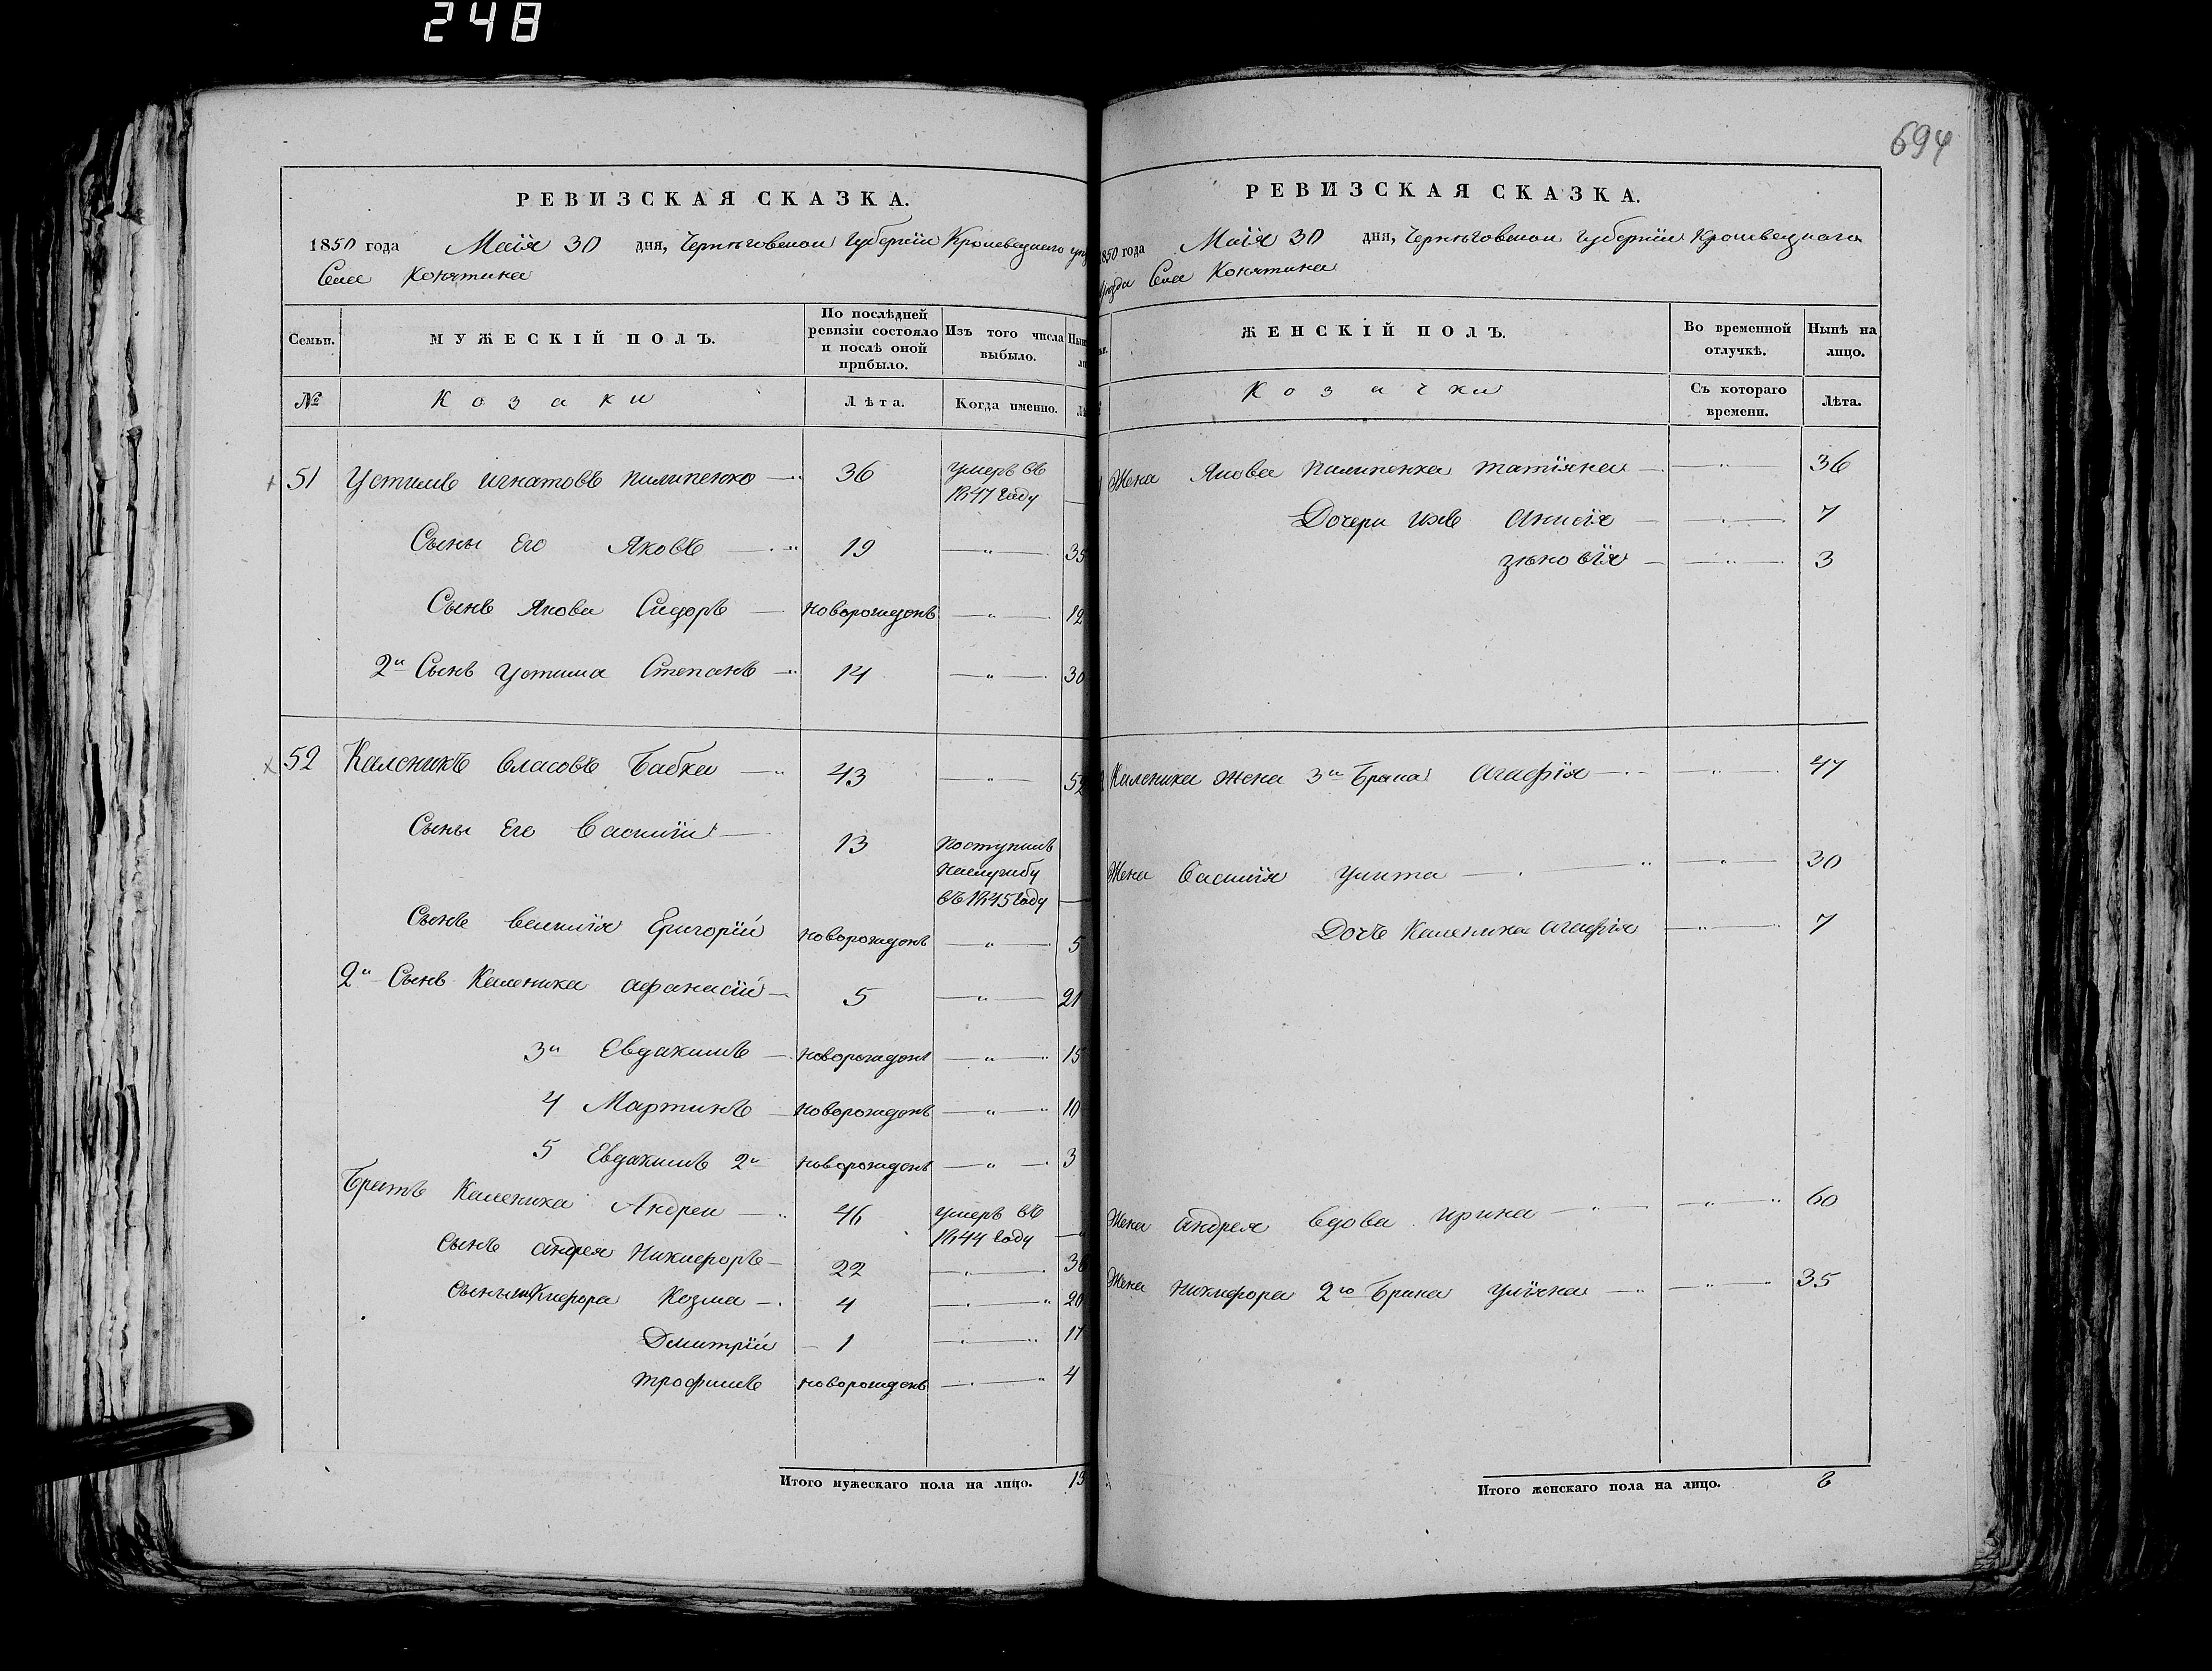 248
694
РЕВИЗСКАЯ СКАЗКА.
1850 года Маія 30 дня, Черниговской Губерніи Кролевецкаго
Села Конятина
Семьи. МУЖЕСКІЙ ПОЛЪ. По послѣдней ревизіи состояло и послѣ оной прибыло. Изъ того числа выбыло.
№ Козаки Лѣта. Когда именно.
51 Устимъ Игнатовъ Пилипенко 36 умеръ въ 1847 году
Сыны Его Яковъ 19 35
Сынъ Якова Сидоръ новорожденъ 12
2й Сынъ Устима Степанъ 14 30
52 Каленикъ Власовъ Бабка 43 59
Сыны Его Василій 13 поступилъ на службу въ 1845 году
Сынъ Василія Григорій новорожденъ 5
2й Сынъ Каленика Афанасій 5 21
3й Евдакимъ новорожденъ 15
4 Мартинъ новорожденъ 10
5 Евдакимъ 2й новорожденъ 3
Братъ Каленика Андрей 46 умеръ въ 1844 году
Сынъ Андрея Никифоръ 22 38
Сыны Никифора Козма 4 20
Дмитрій 1 17
Трофимъ новорожденъ 4
Итого мужескаго пола на лицо. 13
РЕВИЗСКАЯ СКАЗКА.
1850 года Маія 30 дня, Черниговской Губерніи Кролевецкаго
уѣзда Села Конятина
ЖЕНСКІЙ ПОЛЪ. Во временной отлучкѣ. Нынѣ на лицо.
Козачки Съ котораго времени. Лѣта.
Жена Якова Пилипенка Татіяна 36
Дочери ихъ Анисія 7
Зѣновія 3
Каленика жена 3го Брака Агафія 47
Жена Василія Улита 30
Дочь Каленика Агафія 7
Жена Андрея вдова Ирина 60
Жена Никифора 2го Брака Уліяна 35
Итого женскаго пола на лицо. 8